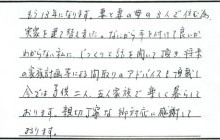 もう13年になります。妻と妻の母の3人で住む為、
実家を建て替えました。なにから手を付けて良いか
わからない私に、じっくりと話を聞いて頂き、将来
の家族計画等による間取りのアドバイスも頂戴し
今では子供二人、五人家族で楽しく暮らして
おります。親切丁寧な御対応に感謝して
おります。